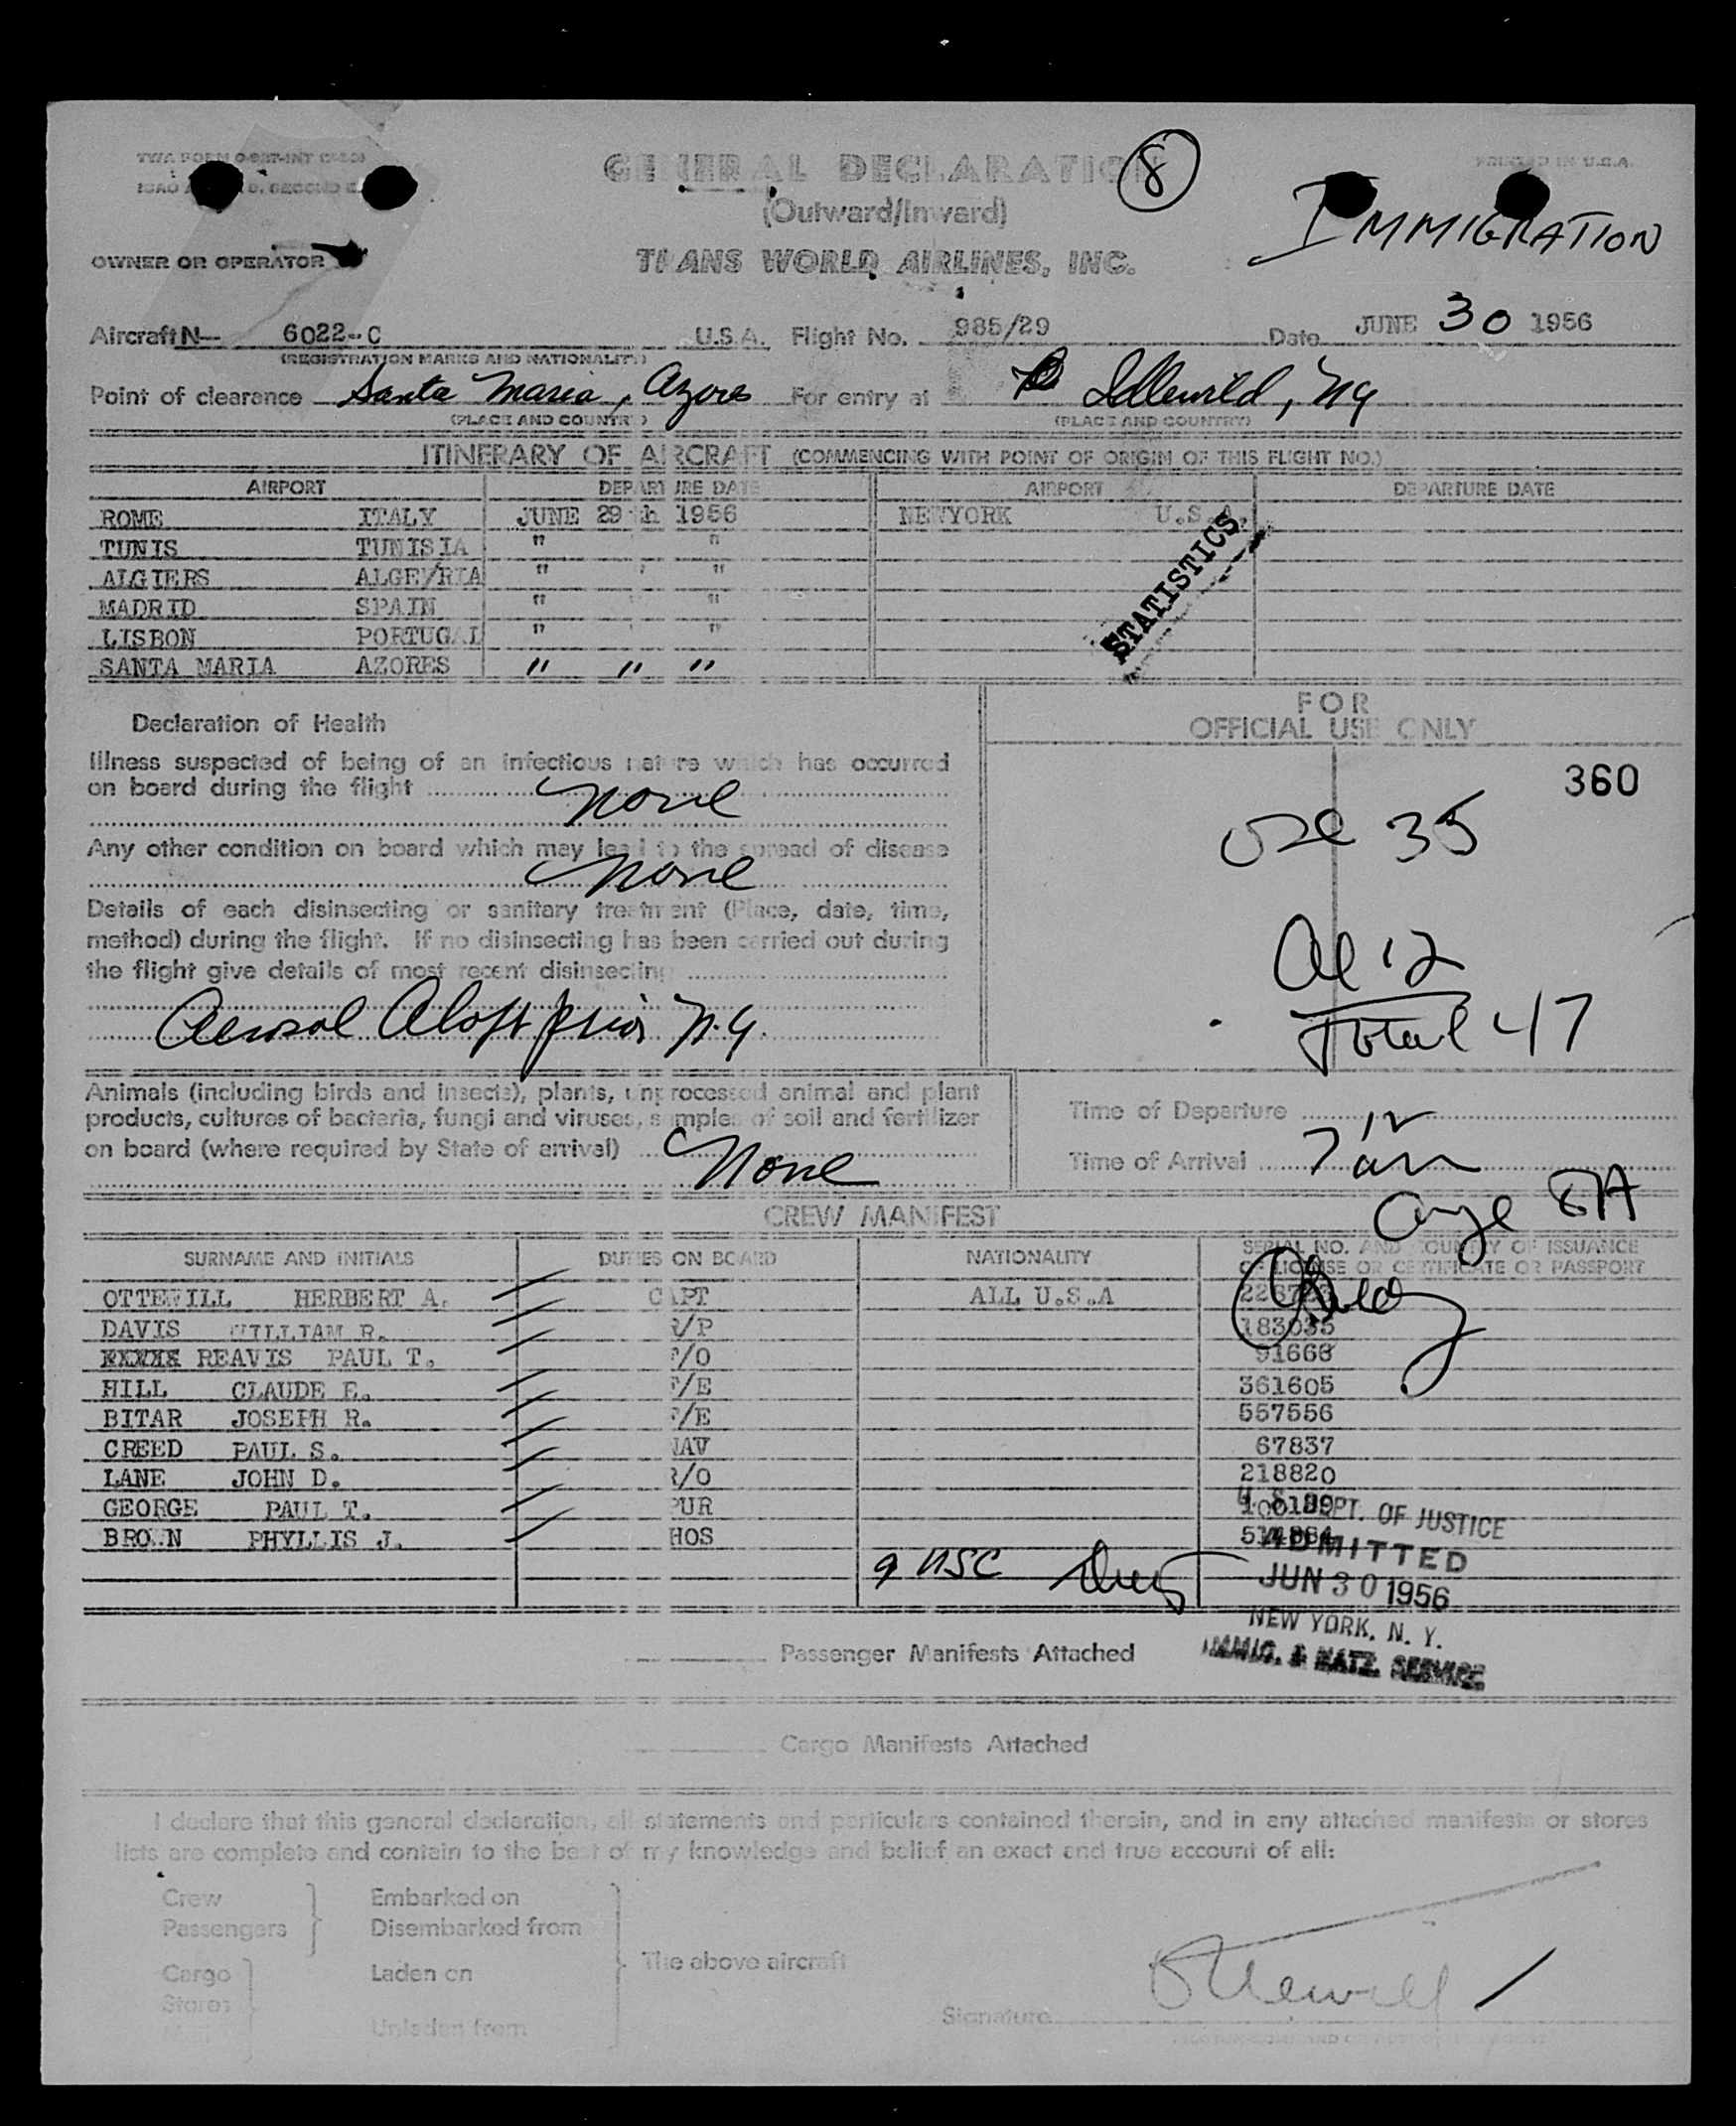 GENERAL DECLARATION
8
PRINTED IN U.S.A.
(Outward/Inward)
IMMIGRATION
OWNER OR OPERATOR
TRANS WORLD AIRLINES, INC.
Aircraft N— 6022-C U.S.A. Flight No. 985/29 Date JUNE 30 1956
(REGISTRATION MARKS AND NATIONALITY)
Point of clearance Santa Maria, Azores For entry at Idlewild, NY
(PLACE AND COUNTRY) (PLACE AND COUNTRY)
ITINERARY OF AIRCRAFT (COMMENCING WITH POINT OF ORIGIN OF THIS FLIGHT NO.)
AIRPORT DEPARTURE DATE AIRPORT DEPARTURE DATE
ROME ITALY JUNE 29th 1956 NEWYORK U.S.A.
TUNIS TUNISIA " " "
ALGIERS ALGE/RIA " " "
MADRID SPAIN " " "
LISBON PORTUGAL " " "
SANTA MARIA AZORES " " "
STATISTICS
FOR
OFFICIAL USE ONLY
360
Declaration of Health
Illness suspected of being of an infectious nature which has occurred
on board during the flight None
Any other condition on board which may lead to the spread of disease
None
Details of each disinsecting or sanitary treatment (Place, date, time,
method) during the flight. If no disinsecting has been carried out during
the flight give details of most recent disinsecting
Aerosol Aloft prior N.Y.
35
Al 12
Total 47
Animals (including birds and insects), plants, unprocessed animal and plant
products, cultures of bacteria, fungi and viruses, samples of soil and fertilizer
on board (where required by State of arrival) None
Time of Departure
Time of Arrival 7 12 am
8A
CREW MANIFEST
SURNAME AND INITIALS DUTIES ON BOARD NATIONALITY SERIAL NO. AND COUNTRY OF ISSUANCE
OF LICENSE OR CERTIFICATE OR PASSPORT
OTTEWILL HERBERT A. CAPT ALL U.S.A
DAVIS WILLIAM R. R/P 183035
REAVIS PAUL T. F/O 91666
HILL CLAUDE E. F/E 361605
BITAR JOSEPH R. F/E 557556
CREED PAUL S. NAV 67837
LANE JOHN D. R/O 218820
GEORGE PAUL T. PUR
BROWN PHYLLIS J. HOS
9 USC
U.S. DEPT. OF JUSTICE
ADMITTED
JUN 30 1956
NEW YORK, N. Y.
IMMIG. & NATZ. SERVICE
Passenger Manifests Attached
Cargo Manifests Attached
I declare that this general declaration, all statements and particulars contained therein, and in any attached manifests or stores
lists are complete and contain to the best of my knowledge and belief an exact and true account of all:
Crew Embarked on
Passengers Disembarked from
The above aircraft
Cargo Laden on
Stores
Unladen from
Signature Ottewill